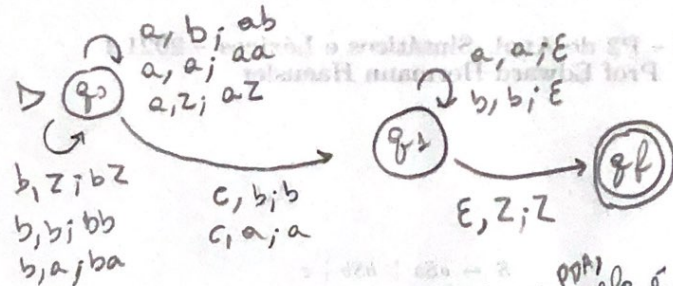 a, b; ab
a, a; aa
a, Z; aZ
q0
b, Z; bZ
b, b; bb
b, a; ba
c, b; b
c, a; a
a, a; ε
b, b; ε
q1
ε, Z; Z
qf
PDA